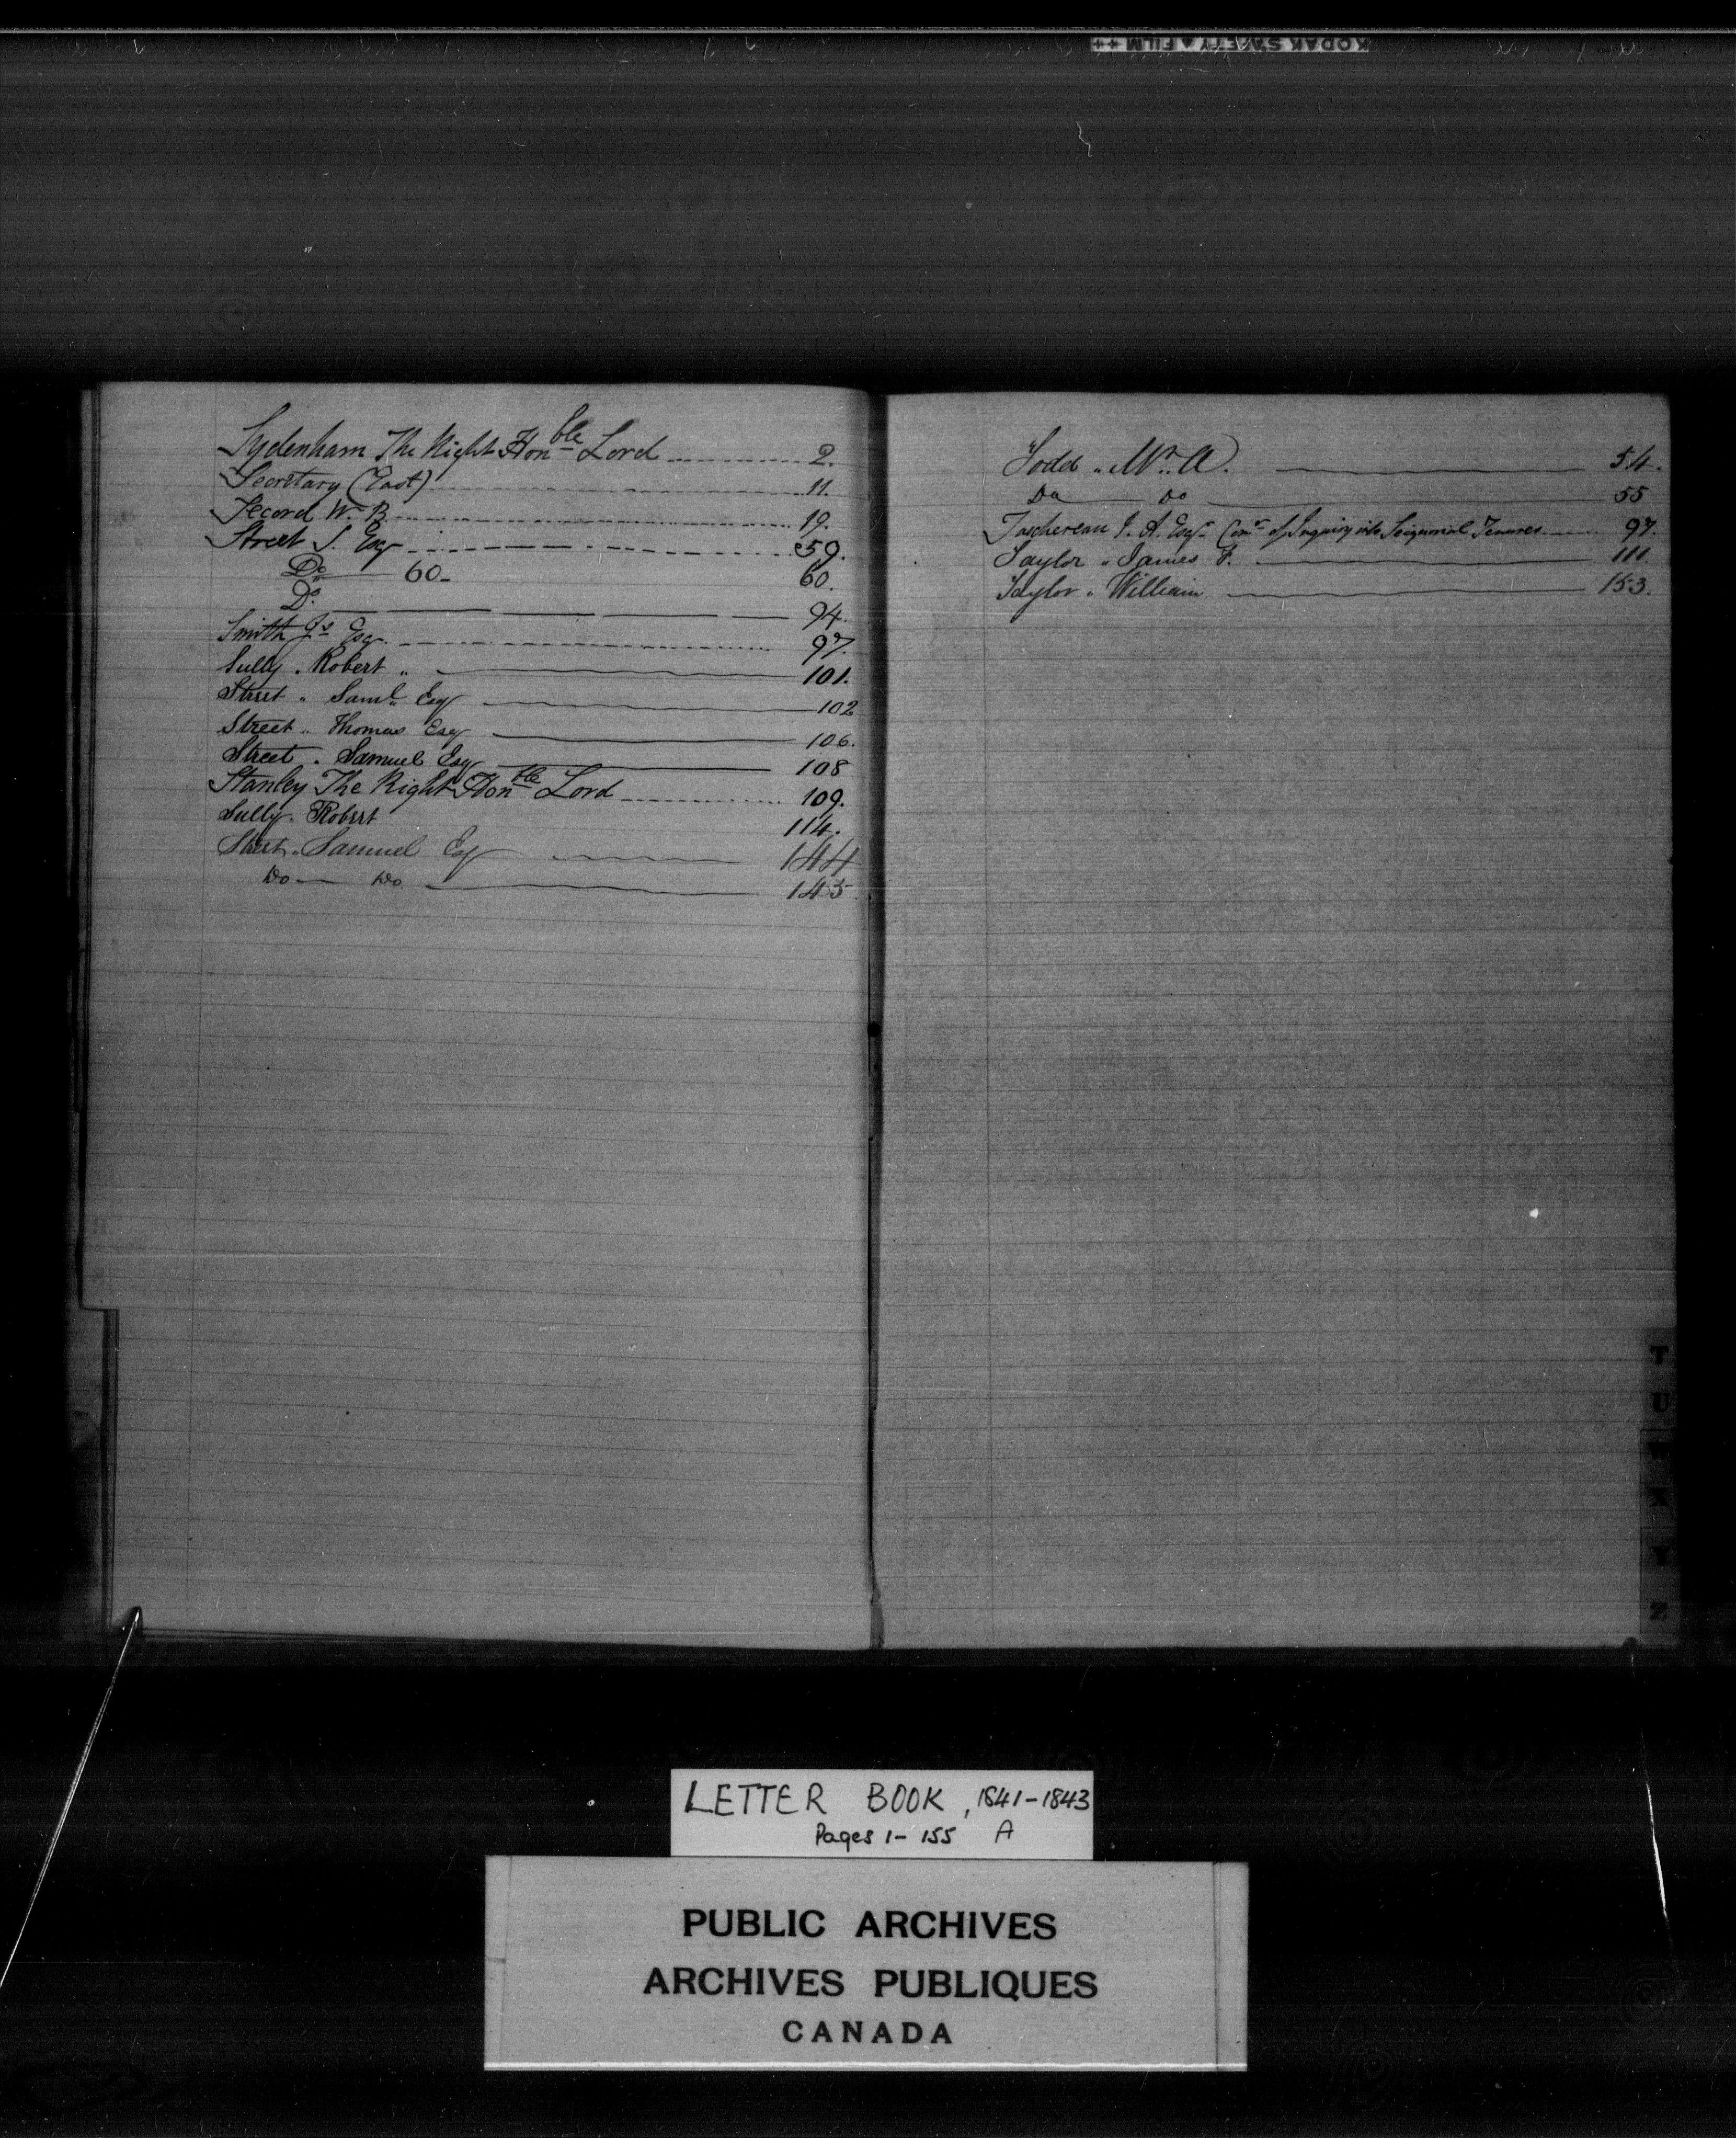 KODAK SAFETY FILM
Sydenham The Right Honble Lord 2.
Secretary (East) 11.
Secord W. B. 19.
Street S. Esqr 59.
Do 60- 60.
Do. 94.
Smith Js Esqr. 97.
Sully. Robert " 101.
Street " Saml. Esqr 102
Street " Thomas Esqr 106.
Street " Samuel Esqr 108
Stanley The Right Honble Lord 109.
Sully. Robert 114.
Street " Samuel Esqr 144
Do Do 145
Todd " Mr. A. 54.
Do Do 55
Taschereau J. A. Esqr. Comr of Inquiry into Seigniorial Tenures 97.
Taylor " James F. 111.
Taylor " William 153.
T
U
W
X
Y
Z
LETTER BOOK, 1841-1843
Pages 1- 155 A
PUBLIC ARCHIVES
ARCHIVES PUBLIQUES
CANADA